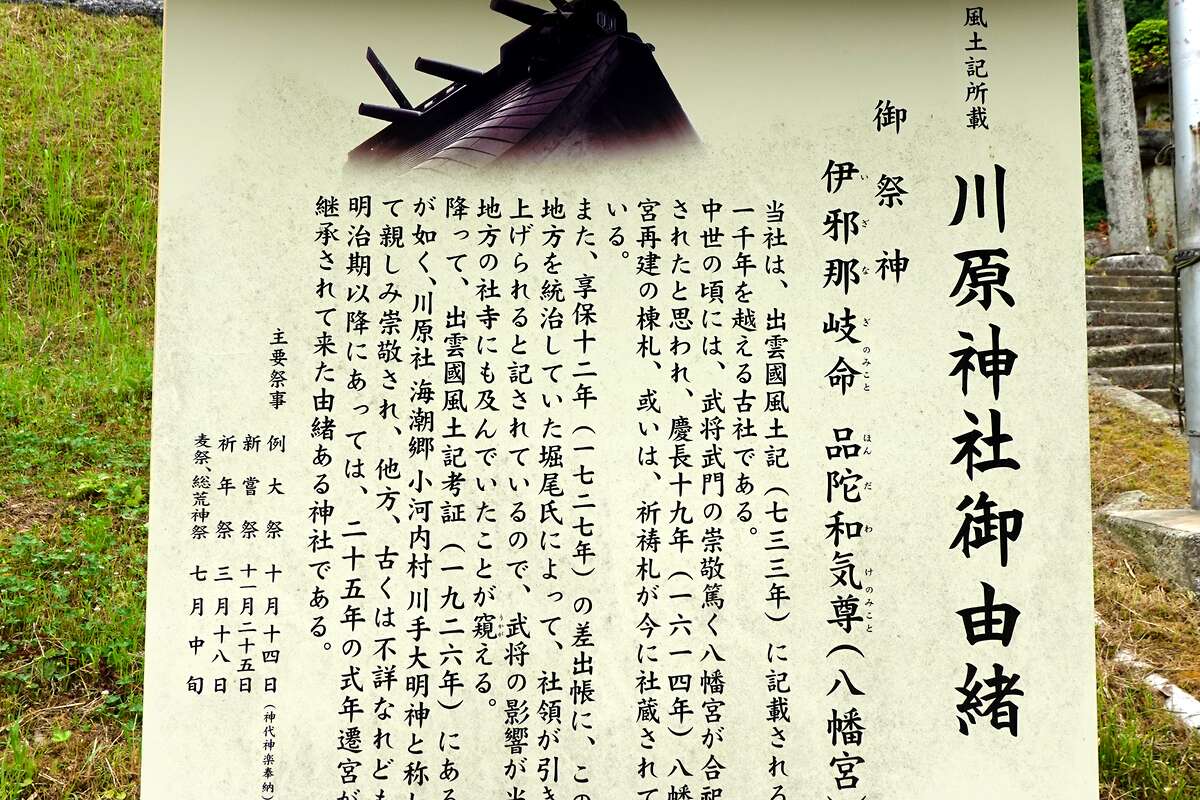 風土記所載
川原神社御由緒
御祭神
伊邪那岐命 品陀和気尊(八幡宮)
いざなぎのみこと ほんだわけのみこと
当社は、出雲國風土記(七三三年)に記載される
一千年を越える古社である。
中世の頃には、武将武門の崇敬篤く八幡宮が合祀
されたと思われ、慶長十九年(一六一四年)八幡
宮再建の棟札、或いは、祈祷札が今に社蔵されて
いる。
また、享保十二年(一七二七年)の差出帳に、この
地方を統治していた堀尾氏によって、社領が引き
上げられると記されているので、武将の影響が当
地方の社寺にも及んでいたことが窺える。
うかが
降って、出雲國風土記考証(一九二六年)にある
が如く、川原社 海潮郷 小河内村 川手大明神と称し
て親しみ崇敬され、他方、古くは不詳なれども
明治期以降にあっては、二十五年の式年遷宮が
継承されて来た由緒ある神社である。
主要祭事
例大祭 十月十四日(神代神楽奉納)
新嘗祭 十一月二十五日
祈年祭 三月十八日
麦祭、総荒神祭 七月中旬